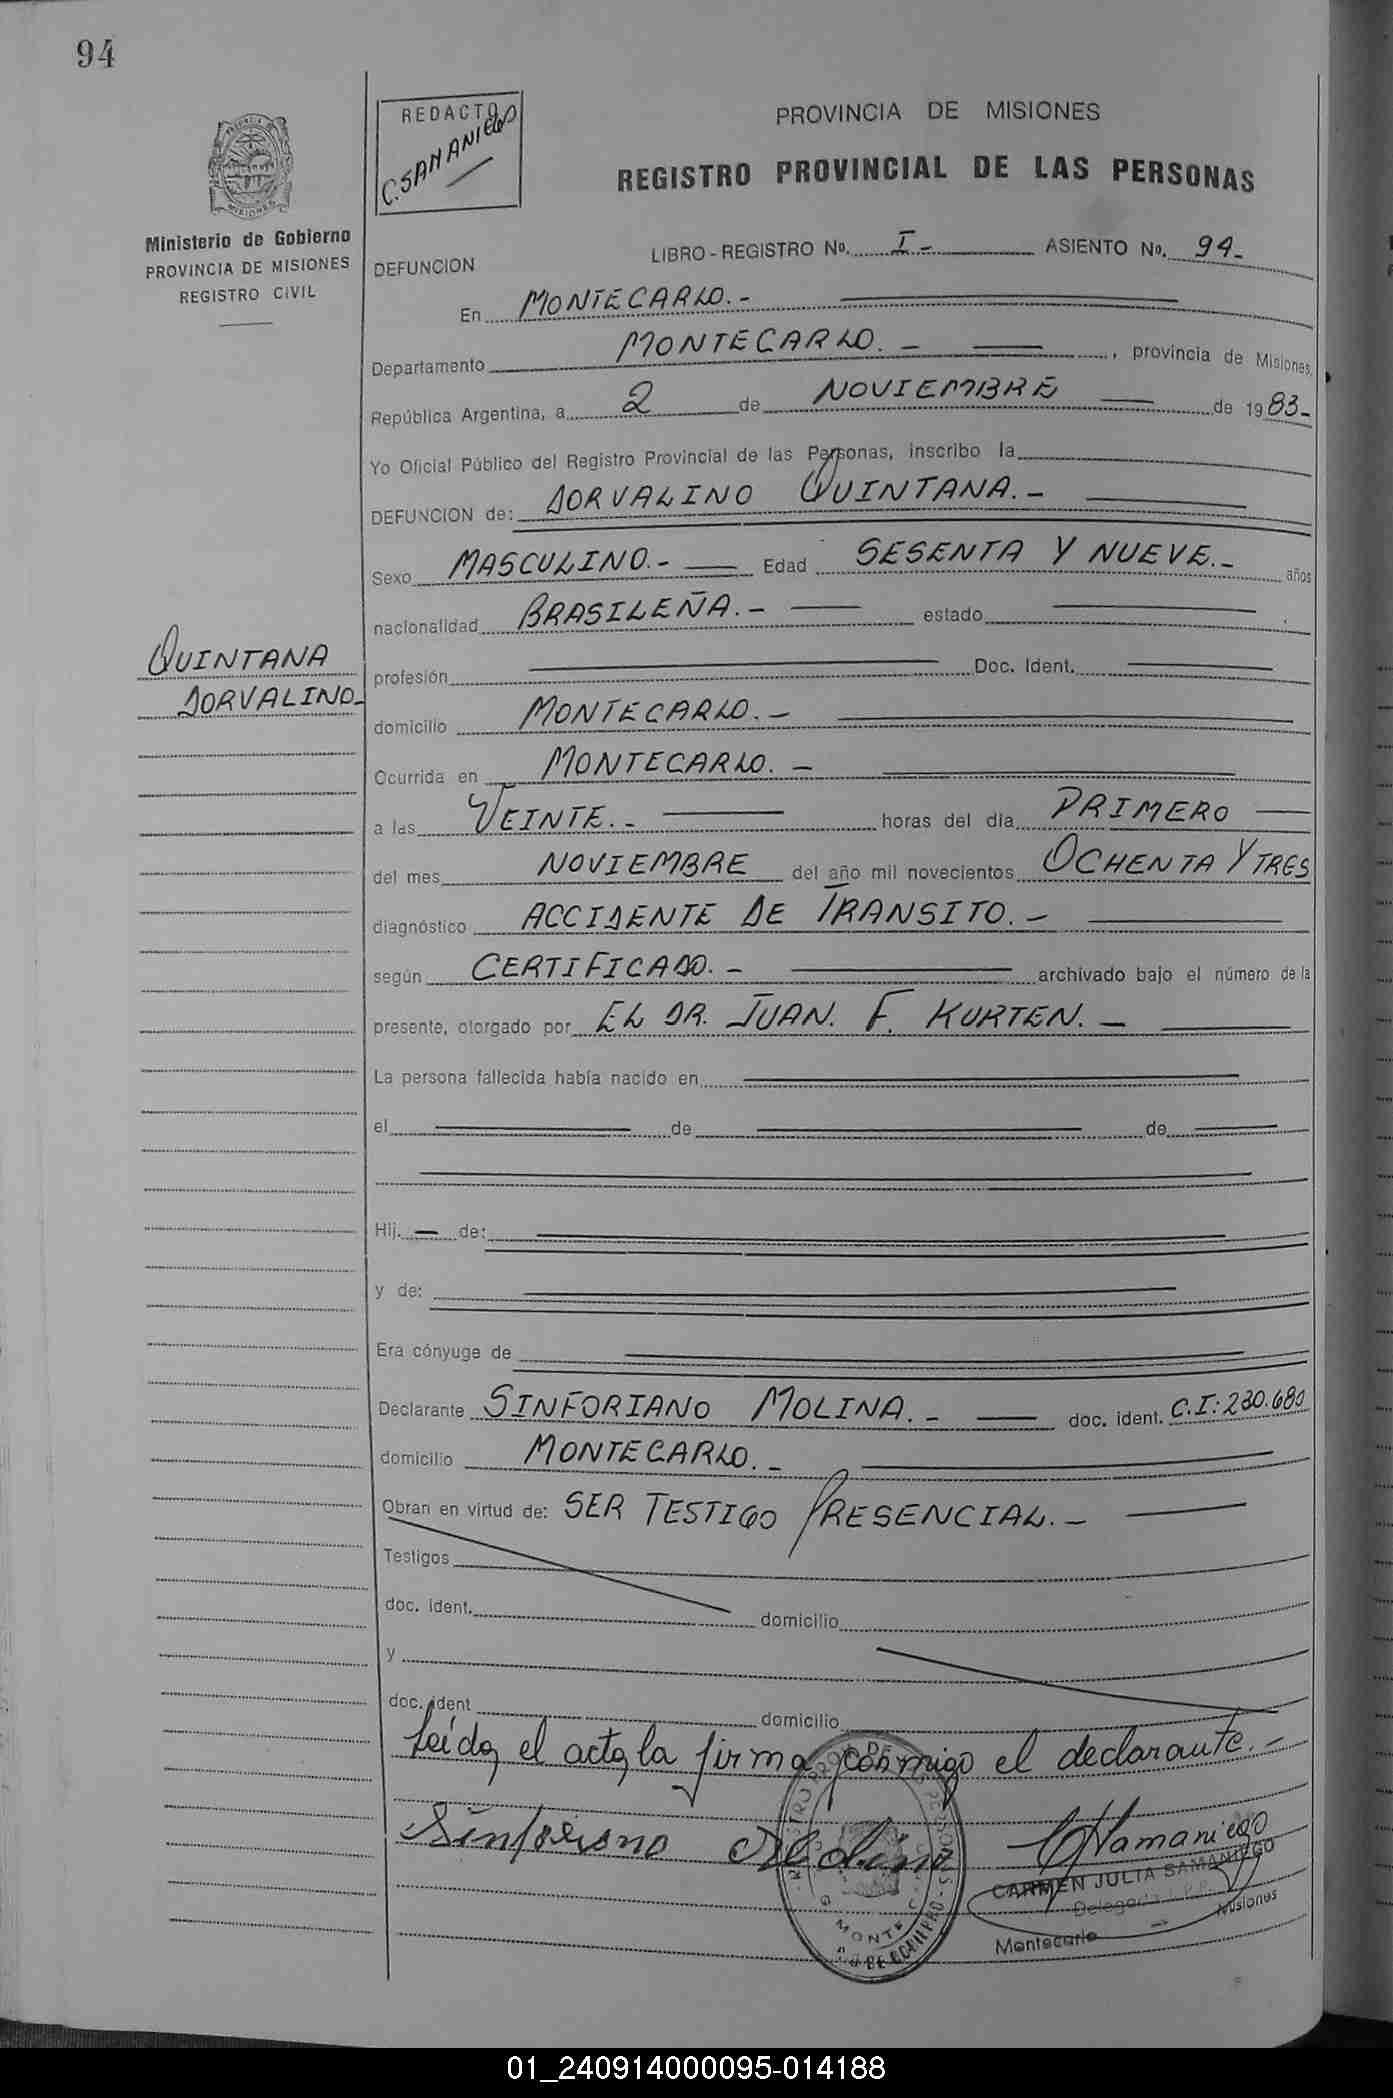 94
REDACTO
C. SAMANIEGO
PROVINCIA DE MISIONES
REGISTRO PROVINCIAL DE LAS PERSONAS
Ministerio de Gobierno
PROVINCIA DE MISIONES
REGISTRO CIVIL
LIBRO - REGISTRO Nº. I - ASIENTO Nº. 94-
DEFUNCION
En MONTECARLO.-
Departamento MONTECARLO. - , provincia de Misiones,
República Argentina, a 2 de NOVIEMBRE de 1983-
Yo Oficial Público del Registro Provincial de las Personas, inscribo la
DEFUNCION de: DORVALINO QUINTANA.-
Sexo MASCULINO.- Edad SESENTA Y NUEVE.- años
nacionalidad BRASILEÑA.- estado
QUINTANA
DORVALINO-
profesión Doc. Ident.
domicilio MONTECARLO.-
Ocurrida en MONTECARLO. -
a las VEINTE.- horas del día PRIMERO
del mes NOVIEMBRE del año mil novecientos OCHENTA Y TRES
diagnóstico ACCIDENTE DE TRANSITO.-
según CERTIFICADO.- archivado bajo el número de la
presente, otorgado por EL DR. JUAN. F. KURTEN.-
La persona fallecida había nacido en
el de de
Hij. de:
y de:
Era cónyuge de
Declarante SINFORIANO MOLINA.- doc. ident. C.I: 230.680
domicilio MONTECARLO.-
Obran en virtud de: SER TESTIGO PRESENCIAL.-
Testigos
doc. ident. domicilio
y
doc. ident domicilio
Leída el acta la firma conmigo el declarante.-
Sinforiano Molina
CSamaniego
CARMEN JULIA SAMANIEGO
Delegada
Montecarlo Misiones
01_240914000095-014188